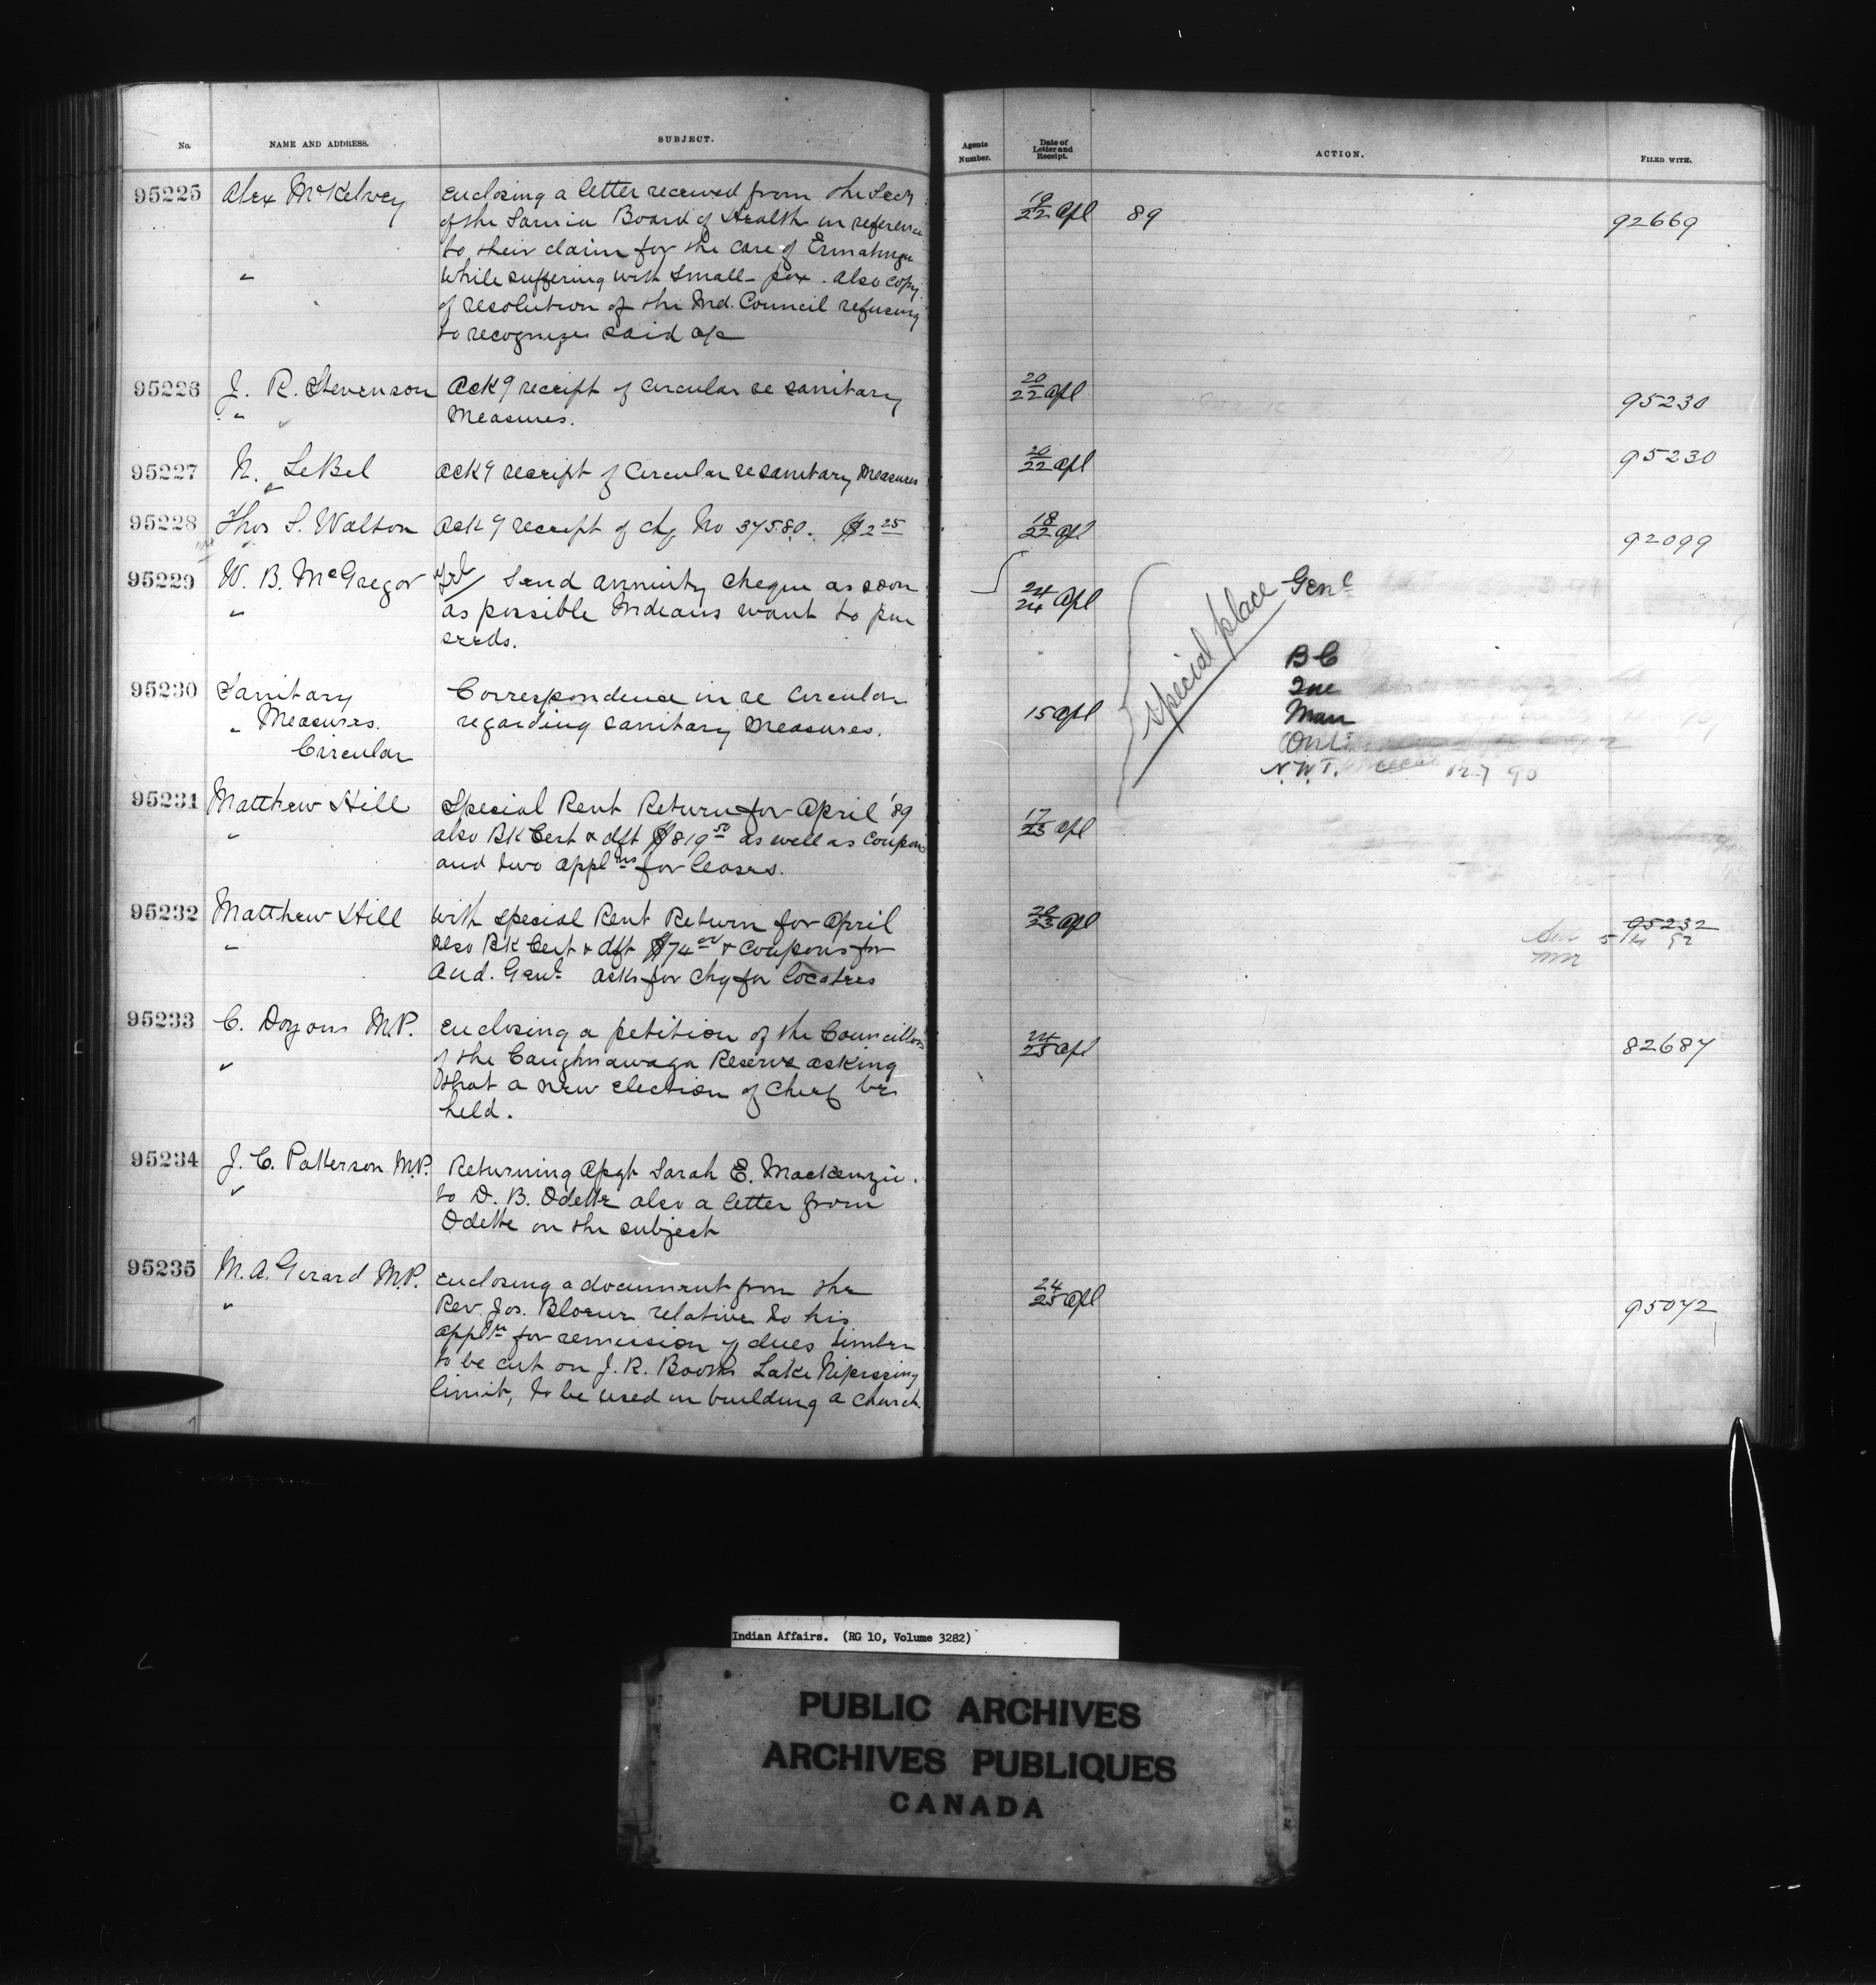 No. NAME AND ADDRESS. SUBJECT. Agents Number. Date of Letter and Receipt. ACTION. FILED WITH.
95225 Alex McKelvey Enclosing a letter received from the Secy 19/22 Apl 89 92669
of the Sarnia Board of Health in reference
to their claim for the care of Ermatinger
" while suffering with Small-pox. Also copy
of resolution of the Ind. Council refusing
to recognize said a/c
95226 J. R. Stevenson Ack g receipt of circular re sanitary 20/22 Apl 95230
" Measures.
95227 N. LeBel Ack g receipt of Circular re sanitary Measures 20/22 Apl 95230
"
95228 Thos S. Walton Ack g receipt of chq No 37580. $2 25 18/22 Apl 92099
95229 W. B. McGregor Send annuity cheque as soon 24/24 Apl
" as possible Indians want to pur
seeds.
special place Genl
B C
Que
Man
Ont
N.W.T. 12.7 90
95230 Sanitary Correspondence in re Circular 15 Apl
" Measures. regarding sanitary measures.
Circular
95231 Matthew Hill Special Rent Return for April '89 17/23 Apl
" also Bk Cert & dft $819 50 as well as Coupons
and two applns for leases.
95232 Matthew Hill with special Rent Return for April 20/23 Apl 95232
" also Bk Cert & dft $74 & Coupons for 5/4 92
Aud. Genl. asks for chq for locatees
95233 C. Doyon M.P. Enclosing a petition of the Councillors 24/25 Apl 82687
" of the Caughnawaga Reserve asking
that a new election of Chief be
held.
95234 J. C. Patterson M.P. Returning Apgt Sarah E. Mackenzie.
" to D. B. Odette also a letter from
Odette on the subject
95235 M. A. Gerard M.P. Enclosing a document from the 24/25 Apl 95072
" Rev Jos. Bloeur relative to his
appln for remission of dues timber
to be cut on J. R. Booth's Lake Nipissing
limit, to be used in building a church.
Indian Affairs. (RG 10, Volume 3282)
PUBLIC ARCHIVES
ARCHIVES PUBLIQUES
CANADA